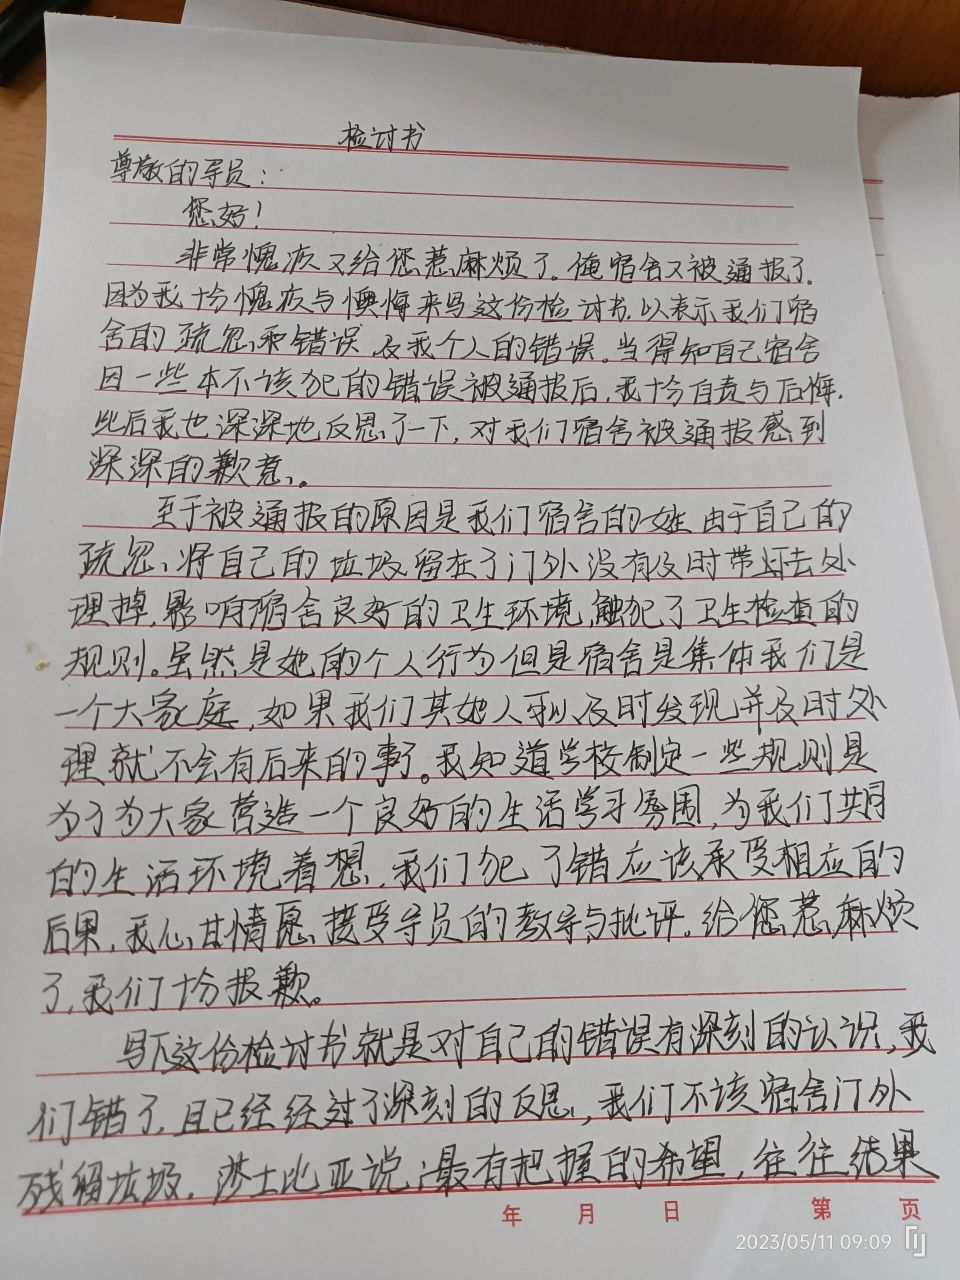 检讨书
尊敬的导员：
您好！
非常愧疚又给您惹麻烦了。俺宿舍又被通报了。
因为我十分愧疚与懊悔来写这份检讨书，以表示我们宿
舍的疏忽和错误及我个人的错误。当得知自己宿舍
因一些本不该犯的错误被通报后，我十分自责与后悔，
此后我也深深地反思了一下，对我们宿舍被通报感到
深深的歉意。
至于被通报的原因是我们宿舍的一姓由于自己的
疏忽，将自己的垃圾留在了门外没有及时带出去处
理掉，影响宿舍良好的卫生环境，触犯了卫生检查的
规则。虽然是她的个人行为但是宿舍是集体我们是
一个大家庭，如果我们其她人可以及时发现并及时处
理就不会有后来的事了。我知道学校制定一些规则是
为了为大家营造一个良好的生活学习氛围，为我们共同
的生活环境着想，我们犯了错应该承受相应的
后果，我心甘情愿接受导员的教导与批评。给您惹麻烦
了，我们十分报歉。
写下这份检讨书就是对自己的错误有深刻的认识，我
们错了，且已经经过了深刻的反思，我们不该宿舍门外
残留垃圾。莎士比亚说：最有把握的希望，往往结果
年 月 日 第 页
2023/05/11 09:09